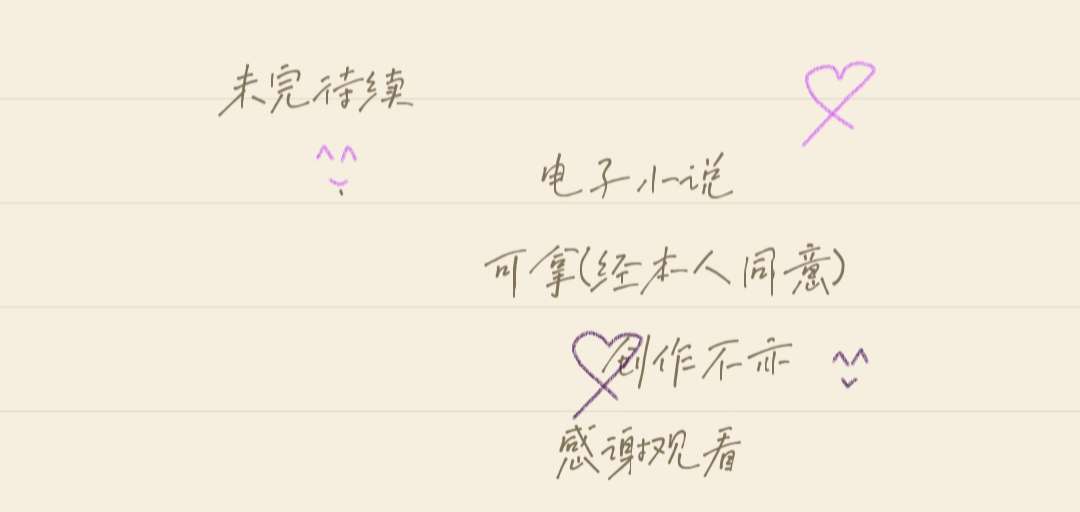 未完待续
电子小说
可拿(经本人同意)
创作不亦
感谢观看